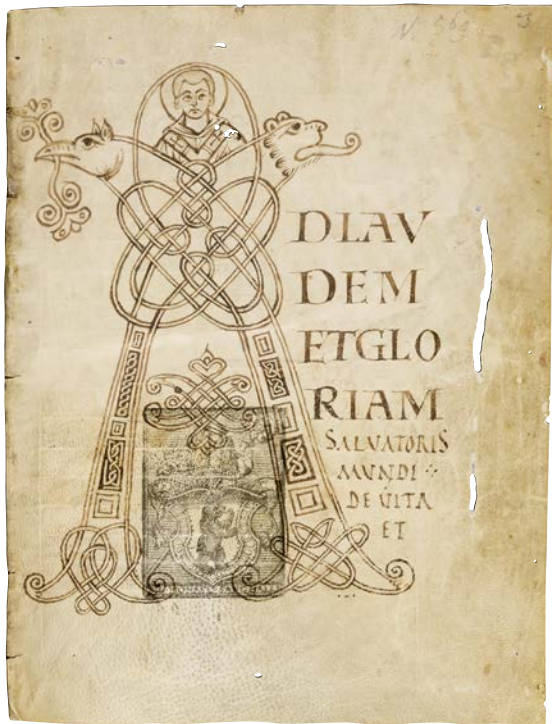 N. 569
A
DLAV
DEM
ETGLO
RIAM
SALVATORIS
MVNDI
DE VITA
ET